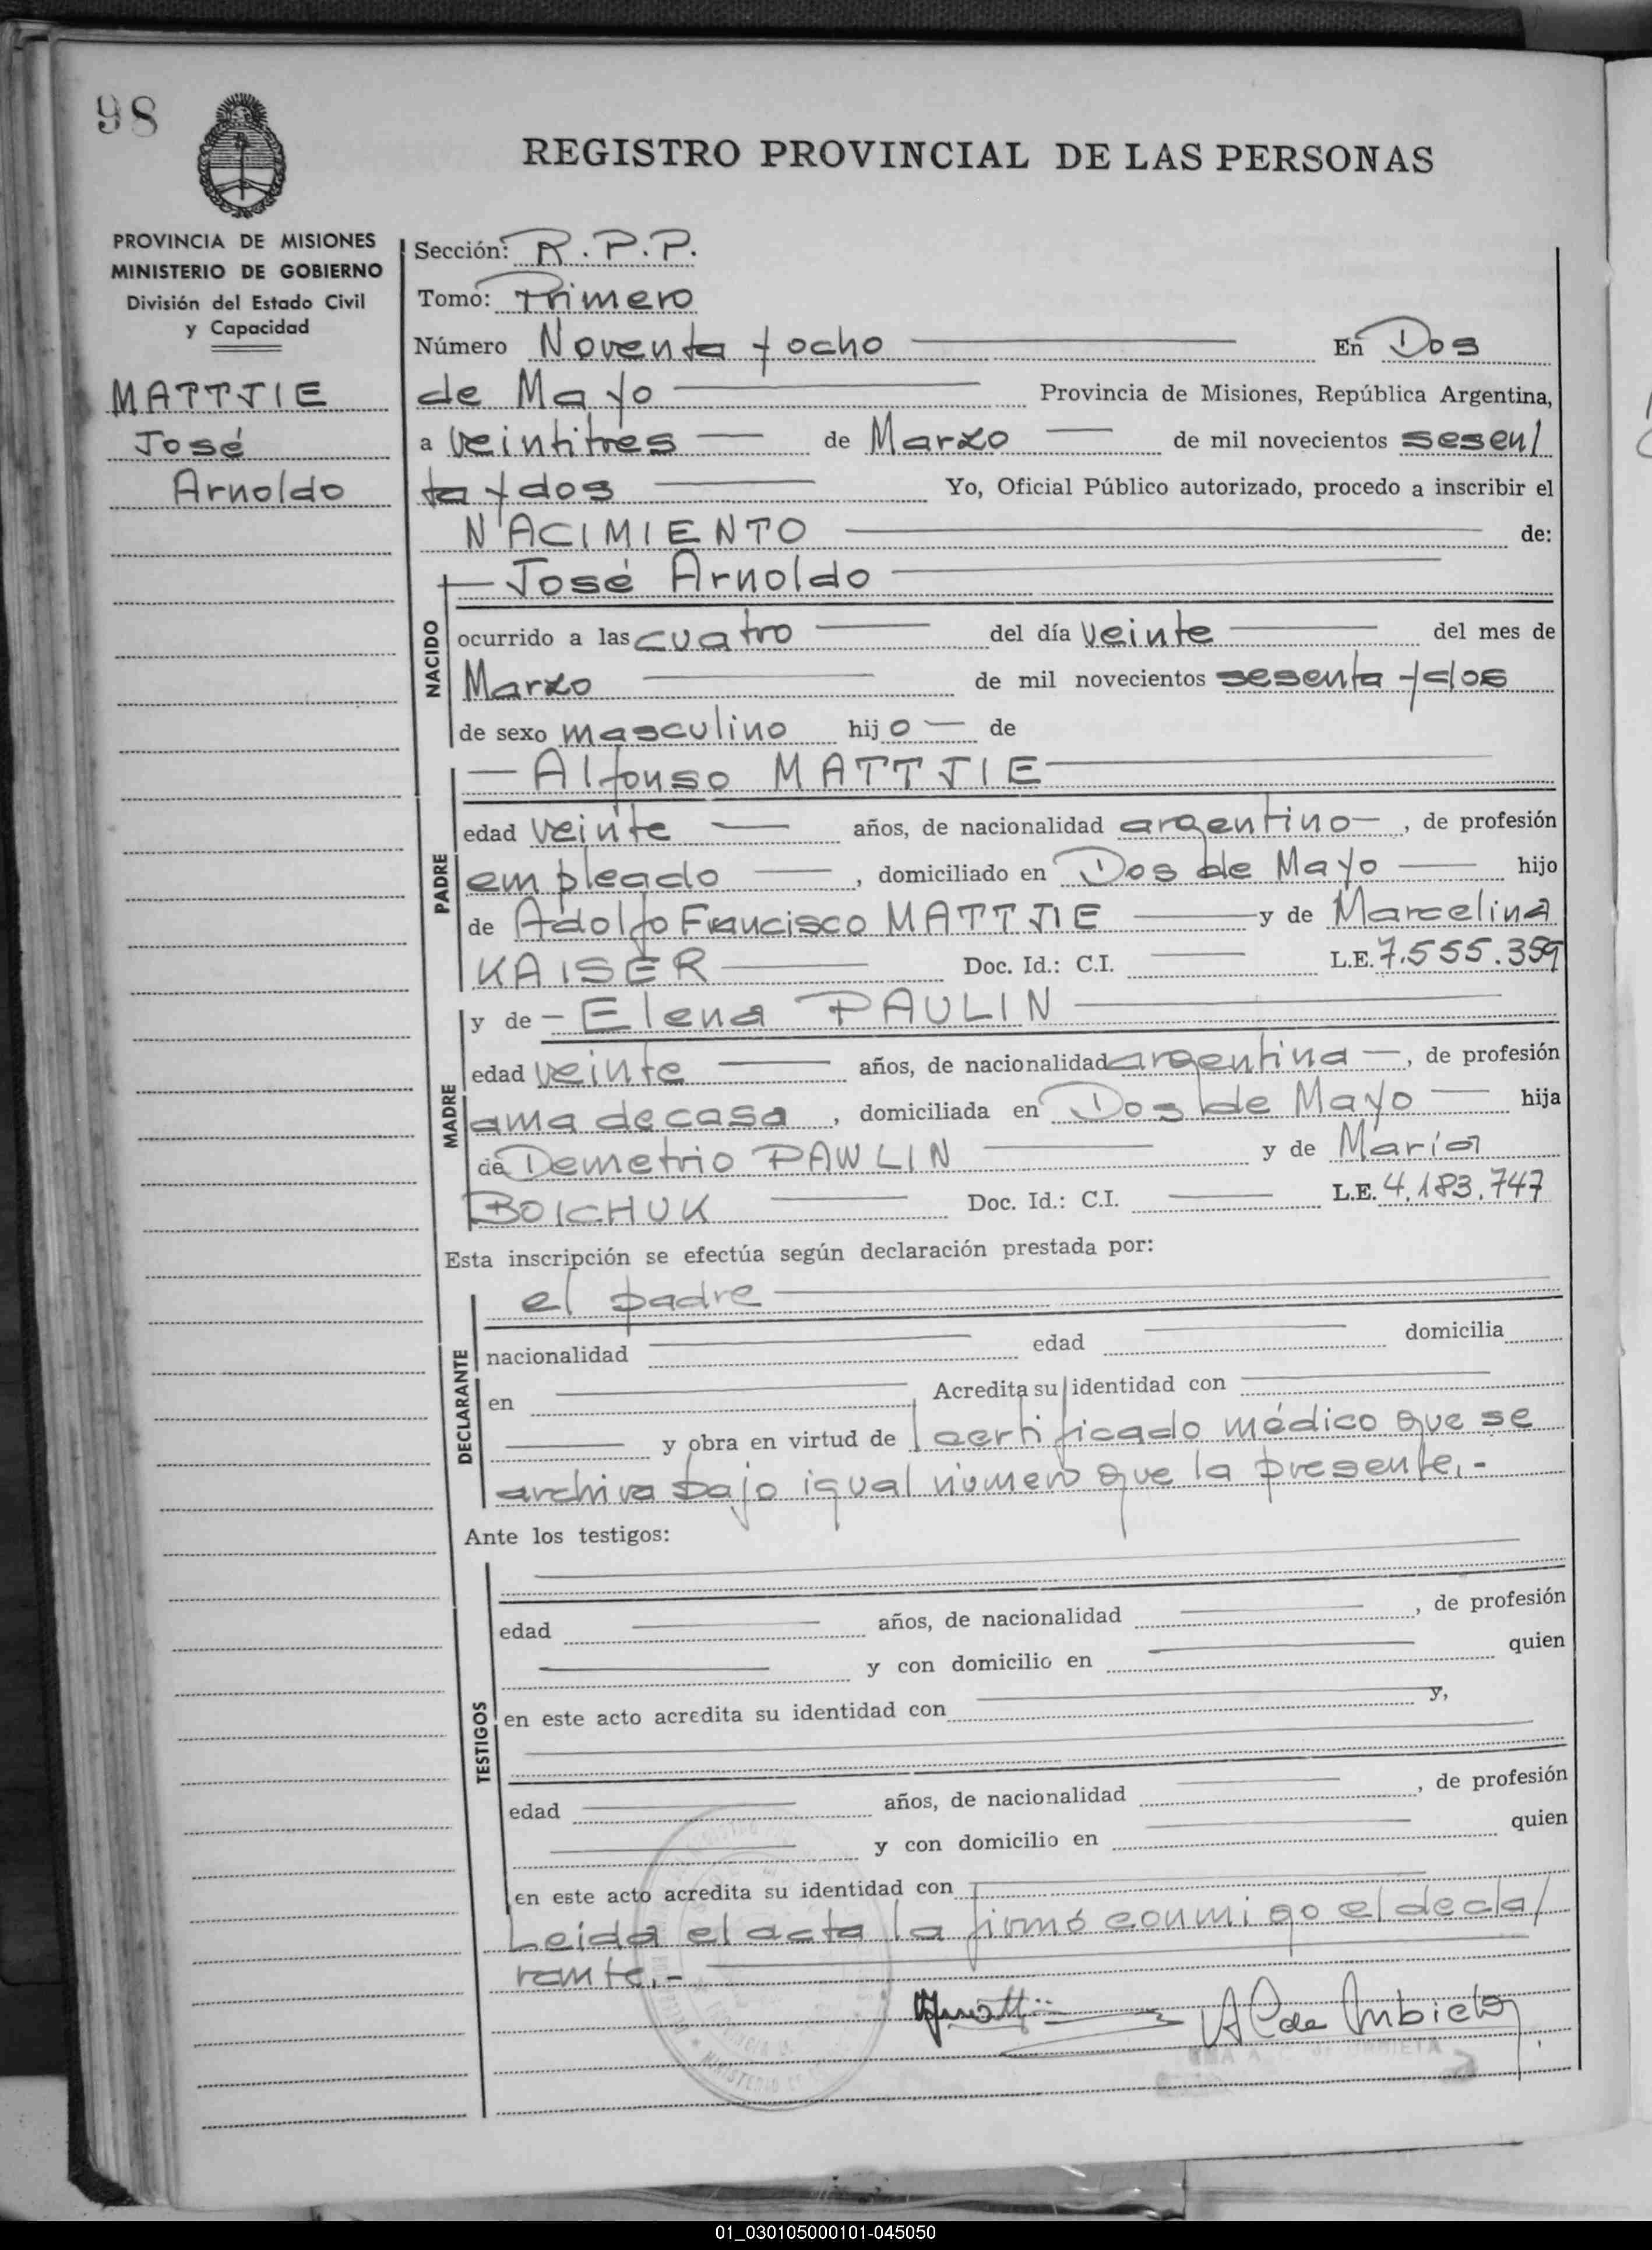 98
REGISTRO PROVINCIAL DE LAS PERSONAS
PROVINCIA DE MISIONES
MINISTERIO DE GOBIERNO
División del Estado Civil
y Capacidad
MATTJIE
José
Arnoldo
Sección: R.P.P.
Tomo: Primero
Número Noventa y ocho En Dos
de Mayo Provincia de Misiones, República Argentina,
a veintitres de Marzo de mil novecientos sesen/
ta y dos Yo, Oficial Público autorizado, procedo a inscribir el
NACIMIENTO de:
José Arnoldo
NACIDO
ocurrido a las cuatro del día veinte del mes de
Marzo de mil novecientos sesenta y dos
de sexo masculino hijo de
Alfonso MATTJIE
PADRE
edad veinte años, de nacionalidad argentino, de profesión
empleado, domiciliado en Dos de Mayo hijo
de Adolfo Francisco MATTJIE y de Marcelina
KAISER Doc. Id.: C.I. L.E. 7.555.359
y de Elena PAULIN
MADRE
edad veinte años, de nacionalidad argentina, de profesión
ama de casa, domiciliada en Dos de Mayo hija
de Demetrio PAWLIN y de María
BOICHUK Doc. Id.: C.I. L.E. 4.183.747
Esta inscripción se efectúa según declaración prestada por:
el padre
DECLARANTE
nacionalidad edad domicilia
en Acredita su identidad con
y obra en virtud de certificado médico que se
archiva bajo igual número que la presente.-
Ante los testigos:
TESTIGOS
edad años, de nacionalidad , de profesión
y con domicilio en quien
en este acto acredita su identidad con y,
edad años, de nacionalidad , de profesión
y con domicilio en quien
en este acto acredita su identidad con
Leida el acta la firmó conmigo el decla/
rante.-
A C de Urbieta
DE URBIETA
01_030105000101-045050